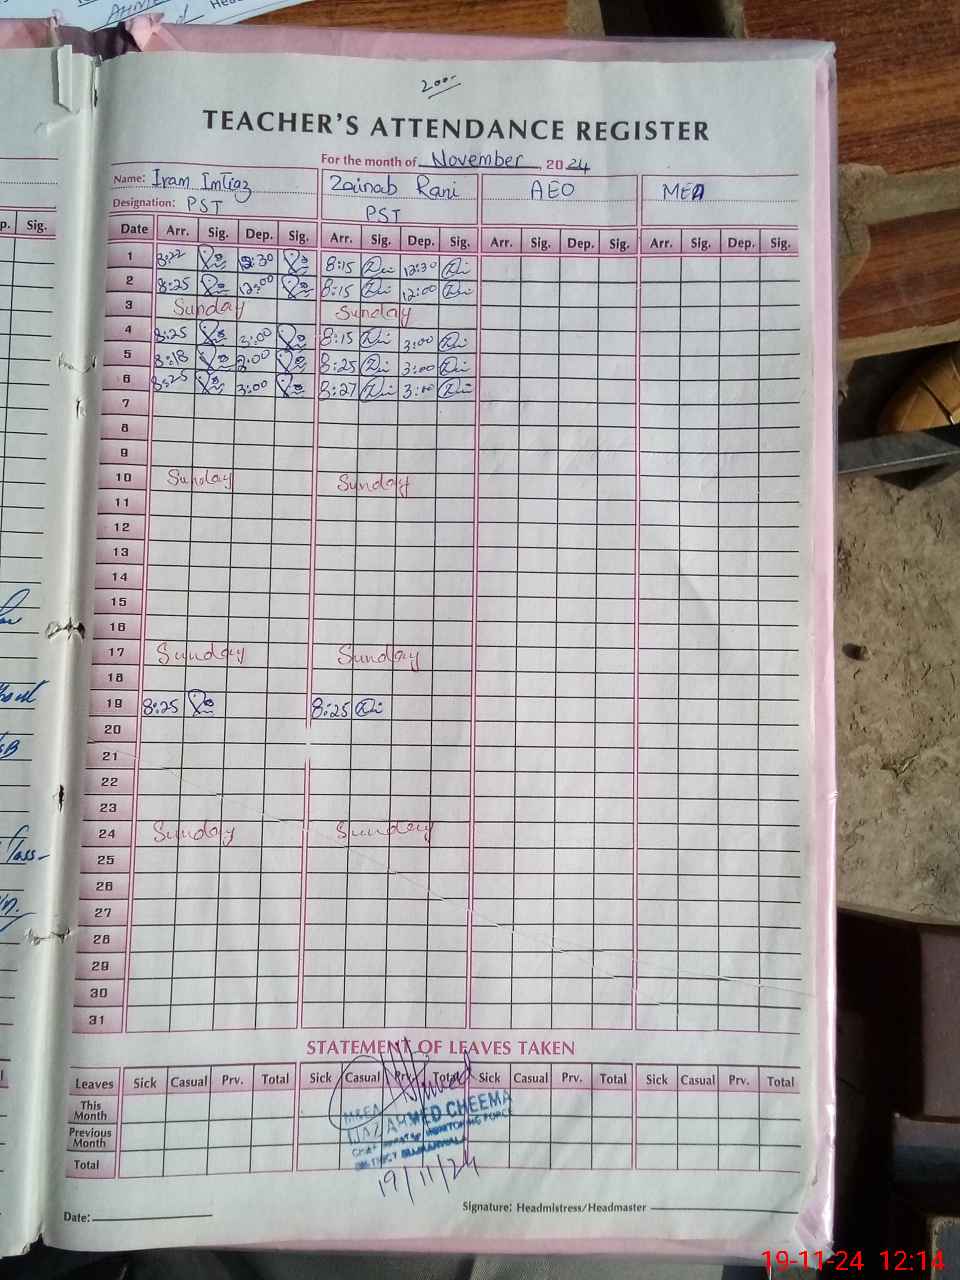 200-
TEACHER'S ATTENDANCE REGISTER
For the month of November, 2024
Name: Iram Imtiaz Zainab Rani AEO MEA
Designation: PST PST
Date Arr. Sig. Dep. Sig. Arr. Sig. Dep. Sig. Arr. Sig. Dep. Sig. Arr. Sig. Dep. Sig.
1 8:22 12:30 8:15 12:30
2 8:25 12:00 8:15 12:00
3 Sunday Sunday
4 8:25 3:00 8:15 3:00
5 8:18 3:00 8:25 3:00
6 8:25 3:00 8:27 3:00
7
8
9
10 Sunday Sunday
11
12
13
14
15
16
17 Sunday Sunday
18
19 8:25 8:25
20
21
22
23
24 Sunday Sunday
25
26
27
28
29
30
31
STATEMENT OF LEAVES TAKEN
Leaves Sick Casual Prv. Total Sick Casual Prv. Total Sick Casual Prv. Total Sick Casual Prv. Total
This Month
Previous Month
Total
AHMED CHEEMA
MONITORING FORCE
DISTRICT
19/11/24
Date:
Signature: Headmistress/Headmaster
19-11-24 12:14